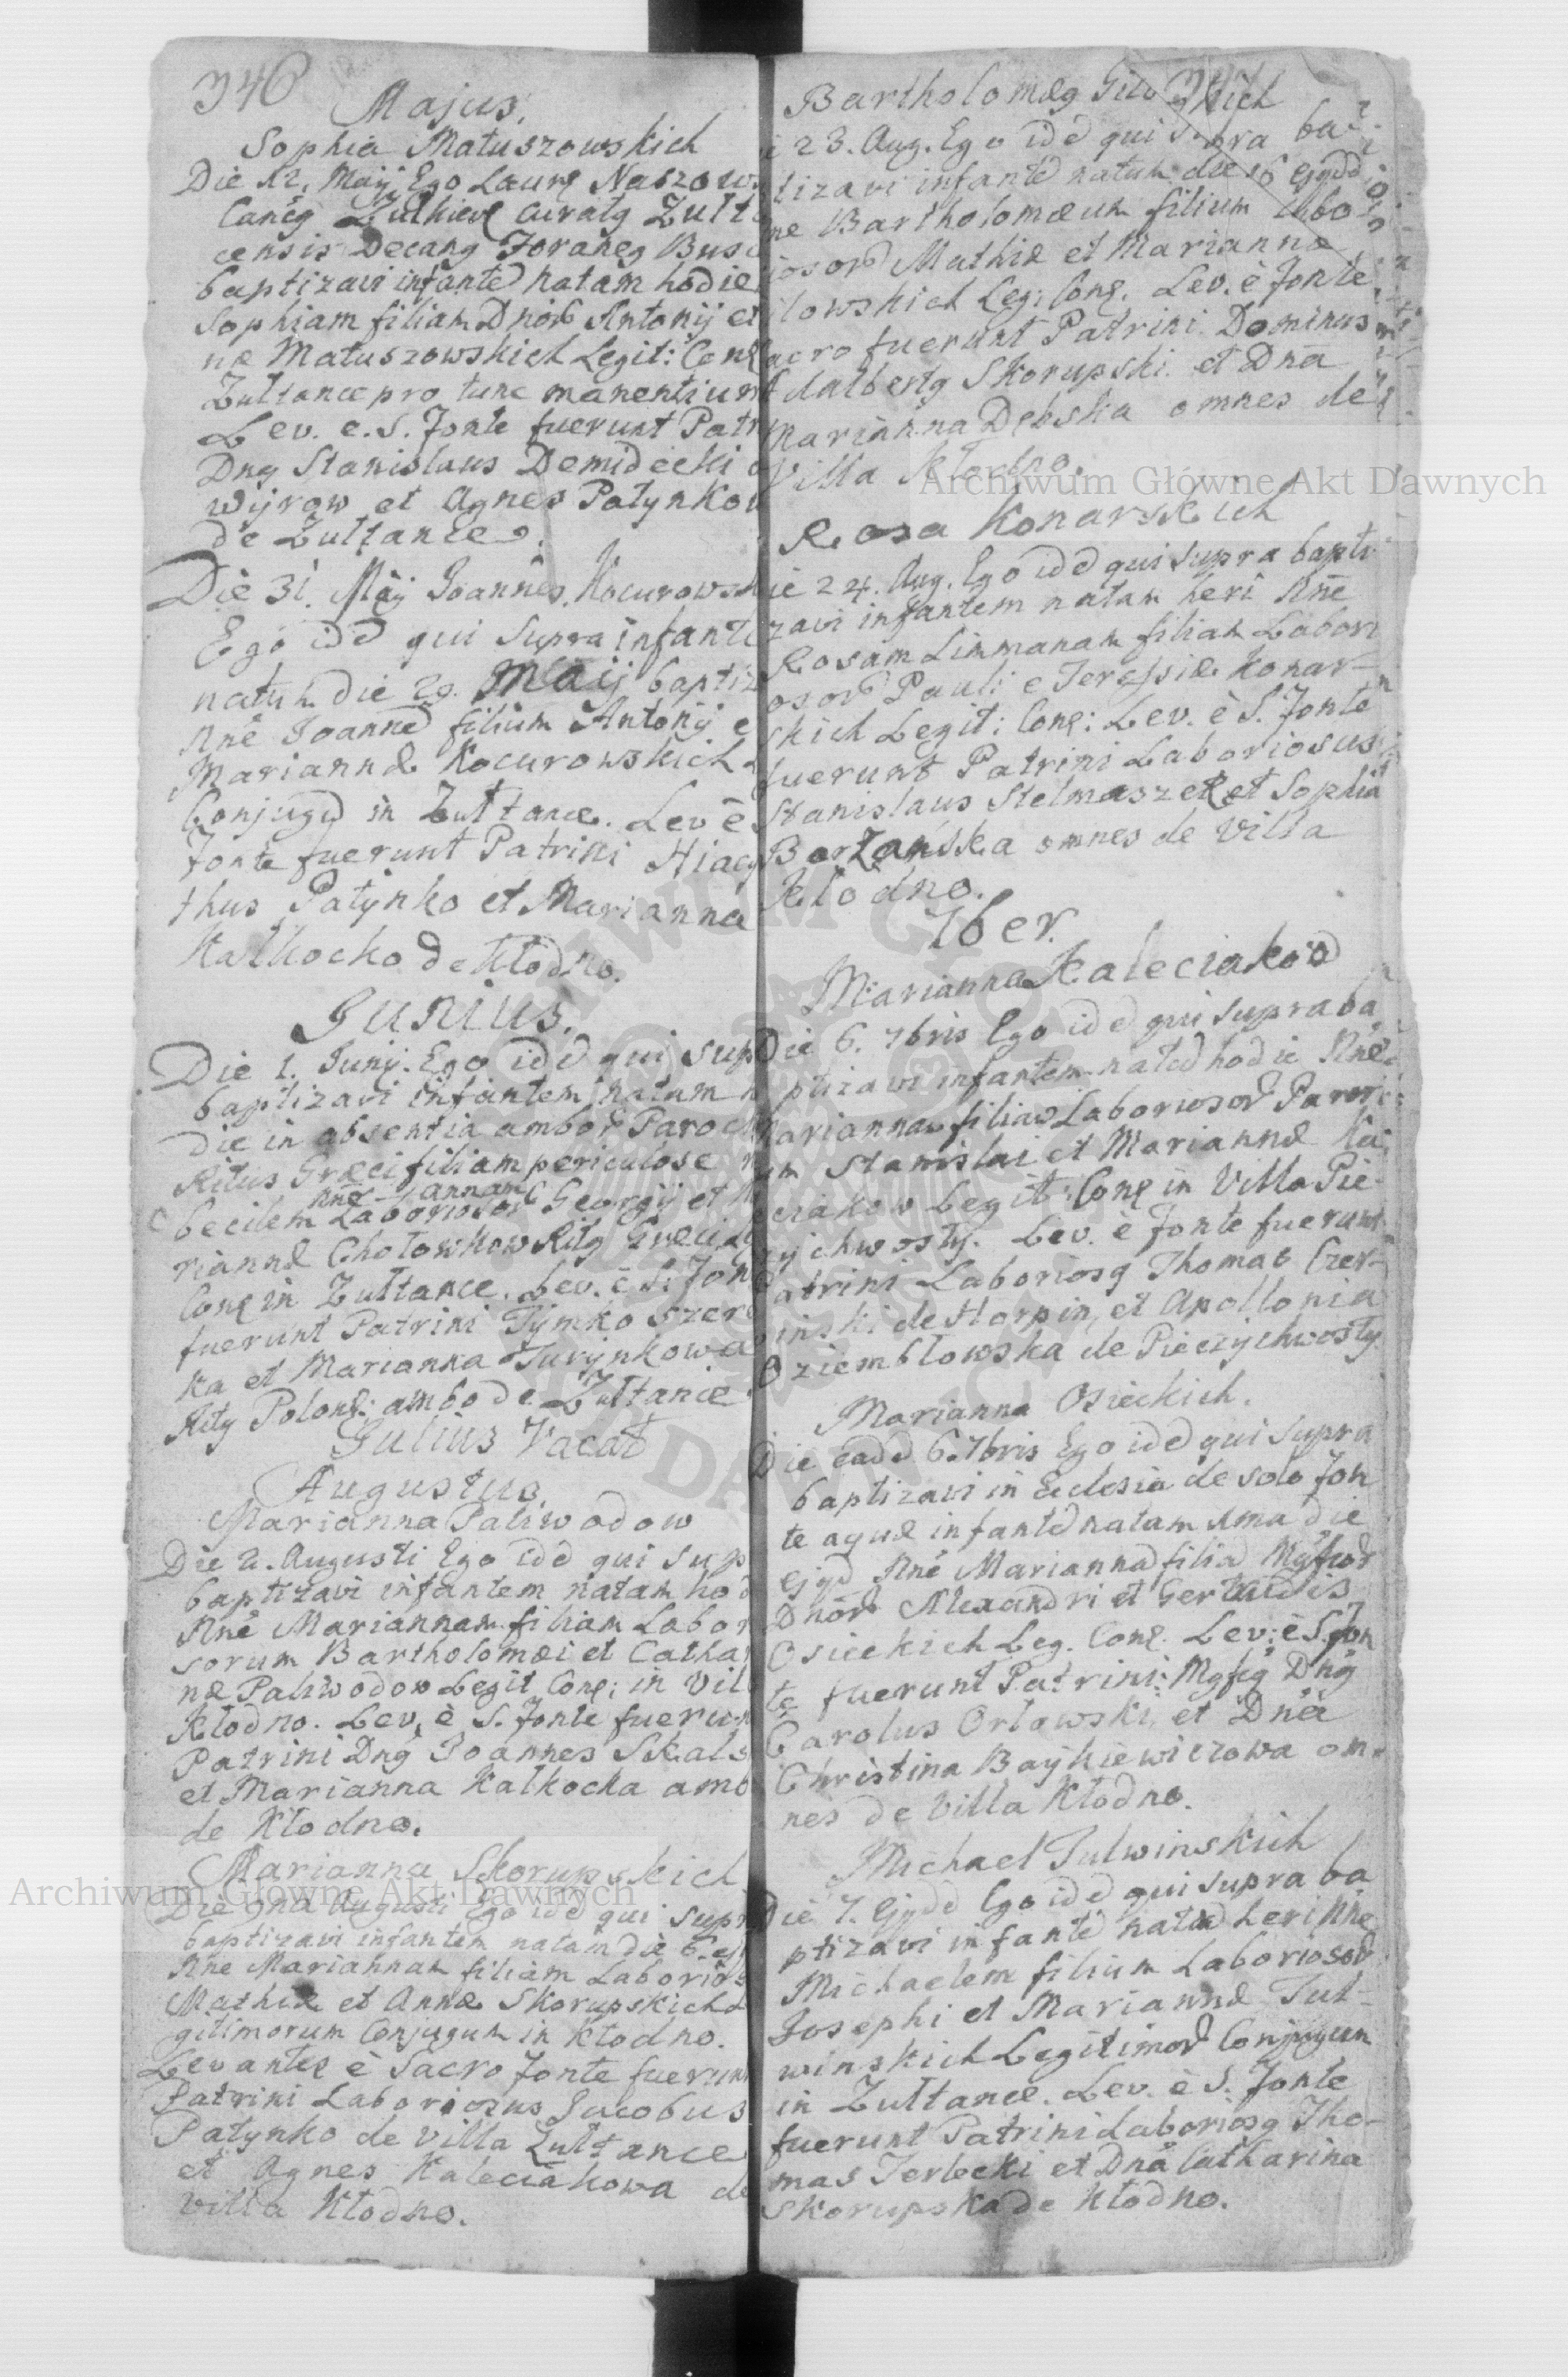 346
Majus.
Sophia Matuszowskich
Die 12. Maij Ego Laurę Naszow
Cancg Zulkieve Curatg Zult
censis Decang Foraneg Busc
baptizavi infanted natam hodie
Sophiam filiam Dnorō Antonij et
næ Matuszowskich Legit: Conę
Zultance pro tunc manentium
Lev. e. S. fonte fuerunt Patr
Dng Stanislaus Demidecki
Wyrow et Agnes Patynkow
de Zułtance.
Die 31. Maij Joannes Kocurowsk
Ego idd qui supra infant
natum die 29. Maij baptiz
Nne Joanned filium Antonij e
Mariannæ Kocurowskich
Conjugū in Zułtance. Lev è
fonte fuerunt Patrini Hiacy
thus Patynko et Marianna
Kałkocko de Kłodno.
Junius.
Die 1. Junij. Ego idd qui sup
baptizavi infantem natam
die in absentia ambor Paroc
Ritus Græci filiam periculose
Nne Annam
becilem Laboriosor Georgij et
riannæ Chotowkow Ritg Græci
Conę in Zułtance. Lev. è S. Fon
fuerunt Patrini Tymko Szer
ka et Marianna Jurynkowa
Ritg Polonę: ambo de Zułtance
Julius Vacat
Augustus.
Marianna Paliwodow
Die 2. Augusti Ego idd qui sup
baptizavi infantem natam hod
Nne Mariannam filiam Labor
sorum Bartholomæi et Catha
næ Paliwodow Legit Conę; in Vil
Kłodno. Lev. è S. fonte fuerun
Patrini Dng Joannes Skals
et Marianna Kalkocka amb
de Kłodno.
Marianna Skorupskich
Die 9na Augusti Ego idd qui supr
baptizavi infantem natam die 6. ej
Nne Mariannam filiam Laborios
Mathiæ et Annæ Skorupskich
gitimorum Conjugum in Kłodno.
Levantes è Sacro fonte fuerun
Patrini Laboriosus Jacobus
Patynko de villa Zułtance
et Agnes Kaleciakowa de
villa Kłodno.
Bartholomæg
23. Aug. Ego idd qui supra ba
tizavi infanted natum die 16 ejgdd
ne Bartholomæum filium Labo
iosorō Mathiæ et Mariannæ
ilowskich Leg: Conę. Lev. è fonte
acro fuerunt Patrini Dominus
dalbertg Skorupski et Dna
Marianna Dębska omnes de
Villa Kłodno.
Rosa Konarskich
ie 24. Aug. Ego idd qui supra bapti
zavi infantem natam heri Nne
Rosam Limmanam filiam Labori
osorō Pauli e Teressiæ Konar-
skich Legit: Conę: Lev. è S. Fonte
fuerunt Patrini Laboriosus
Stanislaus Stelmaszek et Sophia
Borzańska omnes de Villa
Klodno.
7ber.
Marianna Kaleciakod
Die 6. 7bris Ego idd qui supra ba
ptizavi infantem nated hodie Nne
Mariannam filiam Laboriosor
um Stanislai et Mariannæ Ka
eciakow Legit: Conę in Villa Pie-
zychwosty. Lev. è fonte fuerunt
Patrini Laboriosg Thomas Czer-
inski de Horpin, et Apollonia
Dziembłowska de Pieczychwosty.
Marianna Osieckich.
Die eadd 6. 7bris Ego idd qui supra
baptizavi in Eclesia de solo Fon
te aquæ infantd natam 1ma die
ejgd Nne Mariannad filiad Mgfcor
Dnorō Alexandri et Gertrudis
Osieckich Leg. Conę. Lev: è S. fon
te fuerunt Patrini: Mgfcg Dng
Carolus Orlawski, et Dna
Christina Baykiewiczowa om-
nes de Villa Kłodno.
Michael Tulwinskich
Die 7. Ejgdd Ego idd qui supra ba
ptizavi infantē natūd heri Nne
Michaelem filium Laboriosorō
Josephi et Mariannæ Tul-
winskich Legitimorō Conjugum
in Zułtance. Lev. è S. Fonte
fuerunt Patrini Laboriosg Tho-
mas Terlecki et Dna Catharina
Skorupska de Kłodno.
Archiwum Główne Akt Dawnych
Archiwum Główne Akt Dawnych